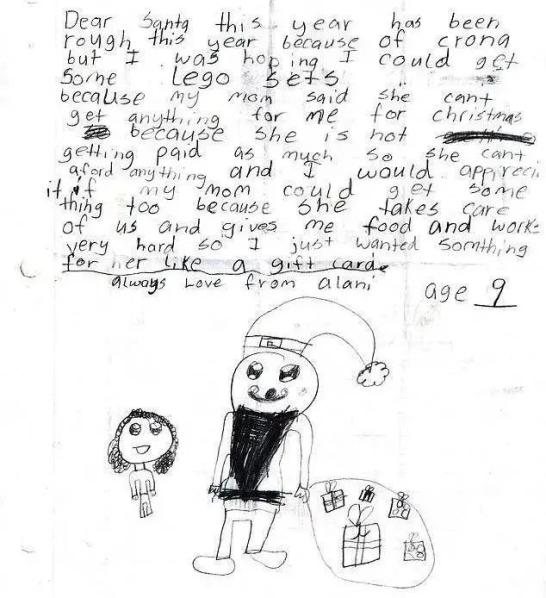 Dear Santa this year has been
rough this year because of crona
but I was hoping I could get
some lego sets
because my mom said she cant
get anything for me for christmas
because she is not
getting paid as much so she cant
aford anything and I would appreci
it if my mom could get some
thing too because she takes care
of us and gives me food and works
very hard so I just wanted somthing
for her like a gift card.
always Love from alani
age 9